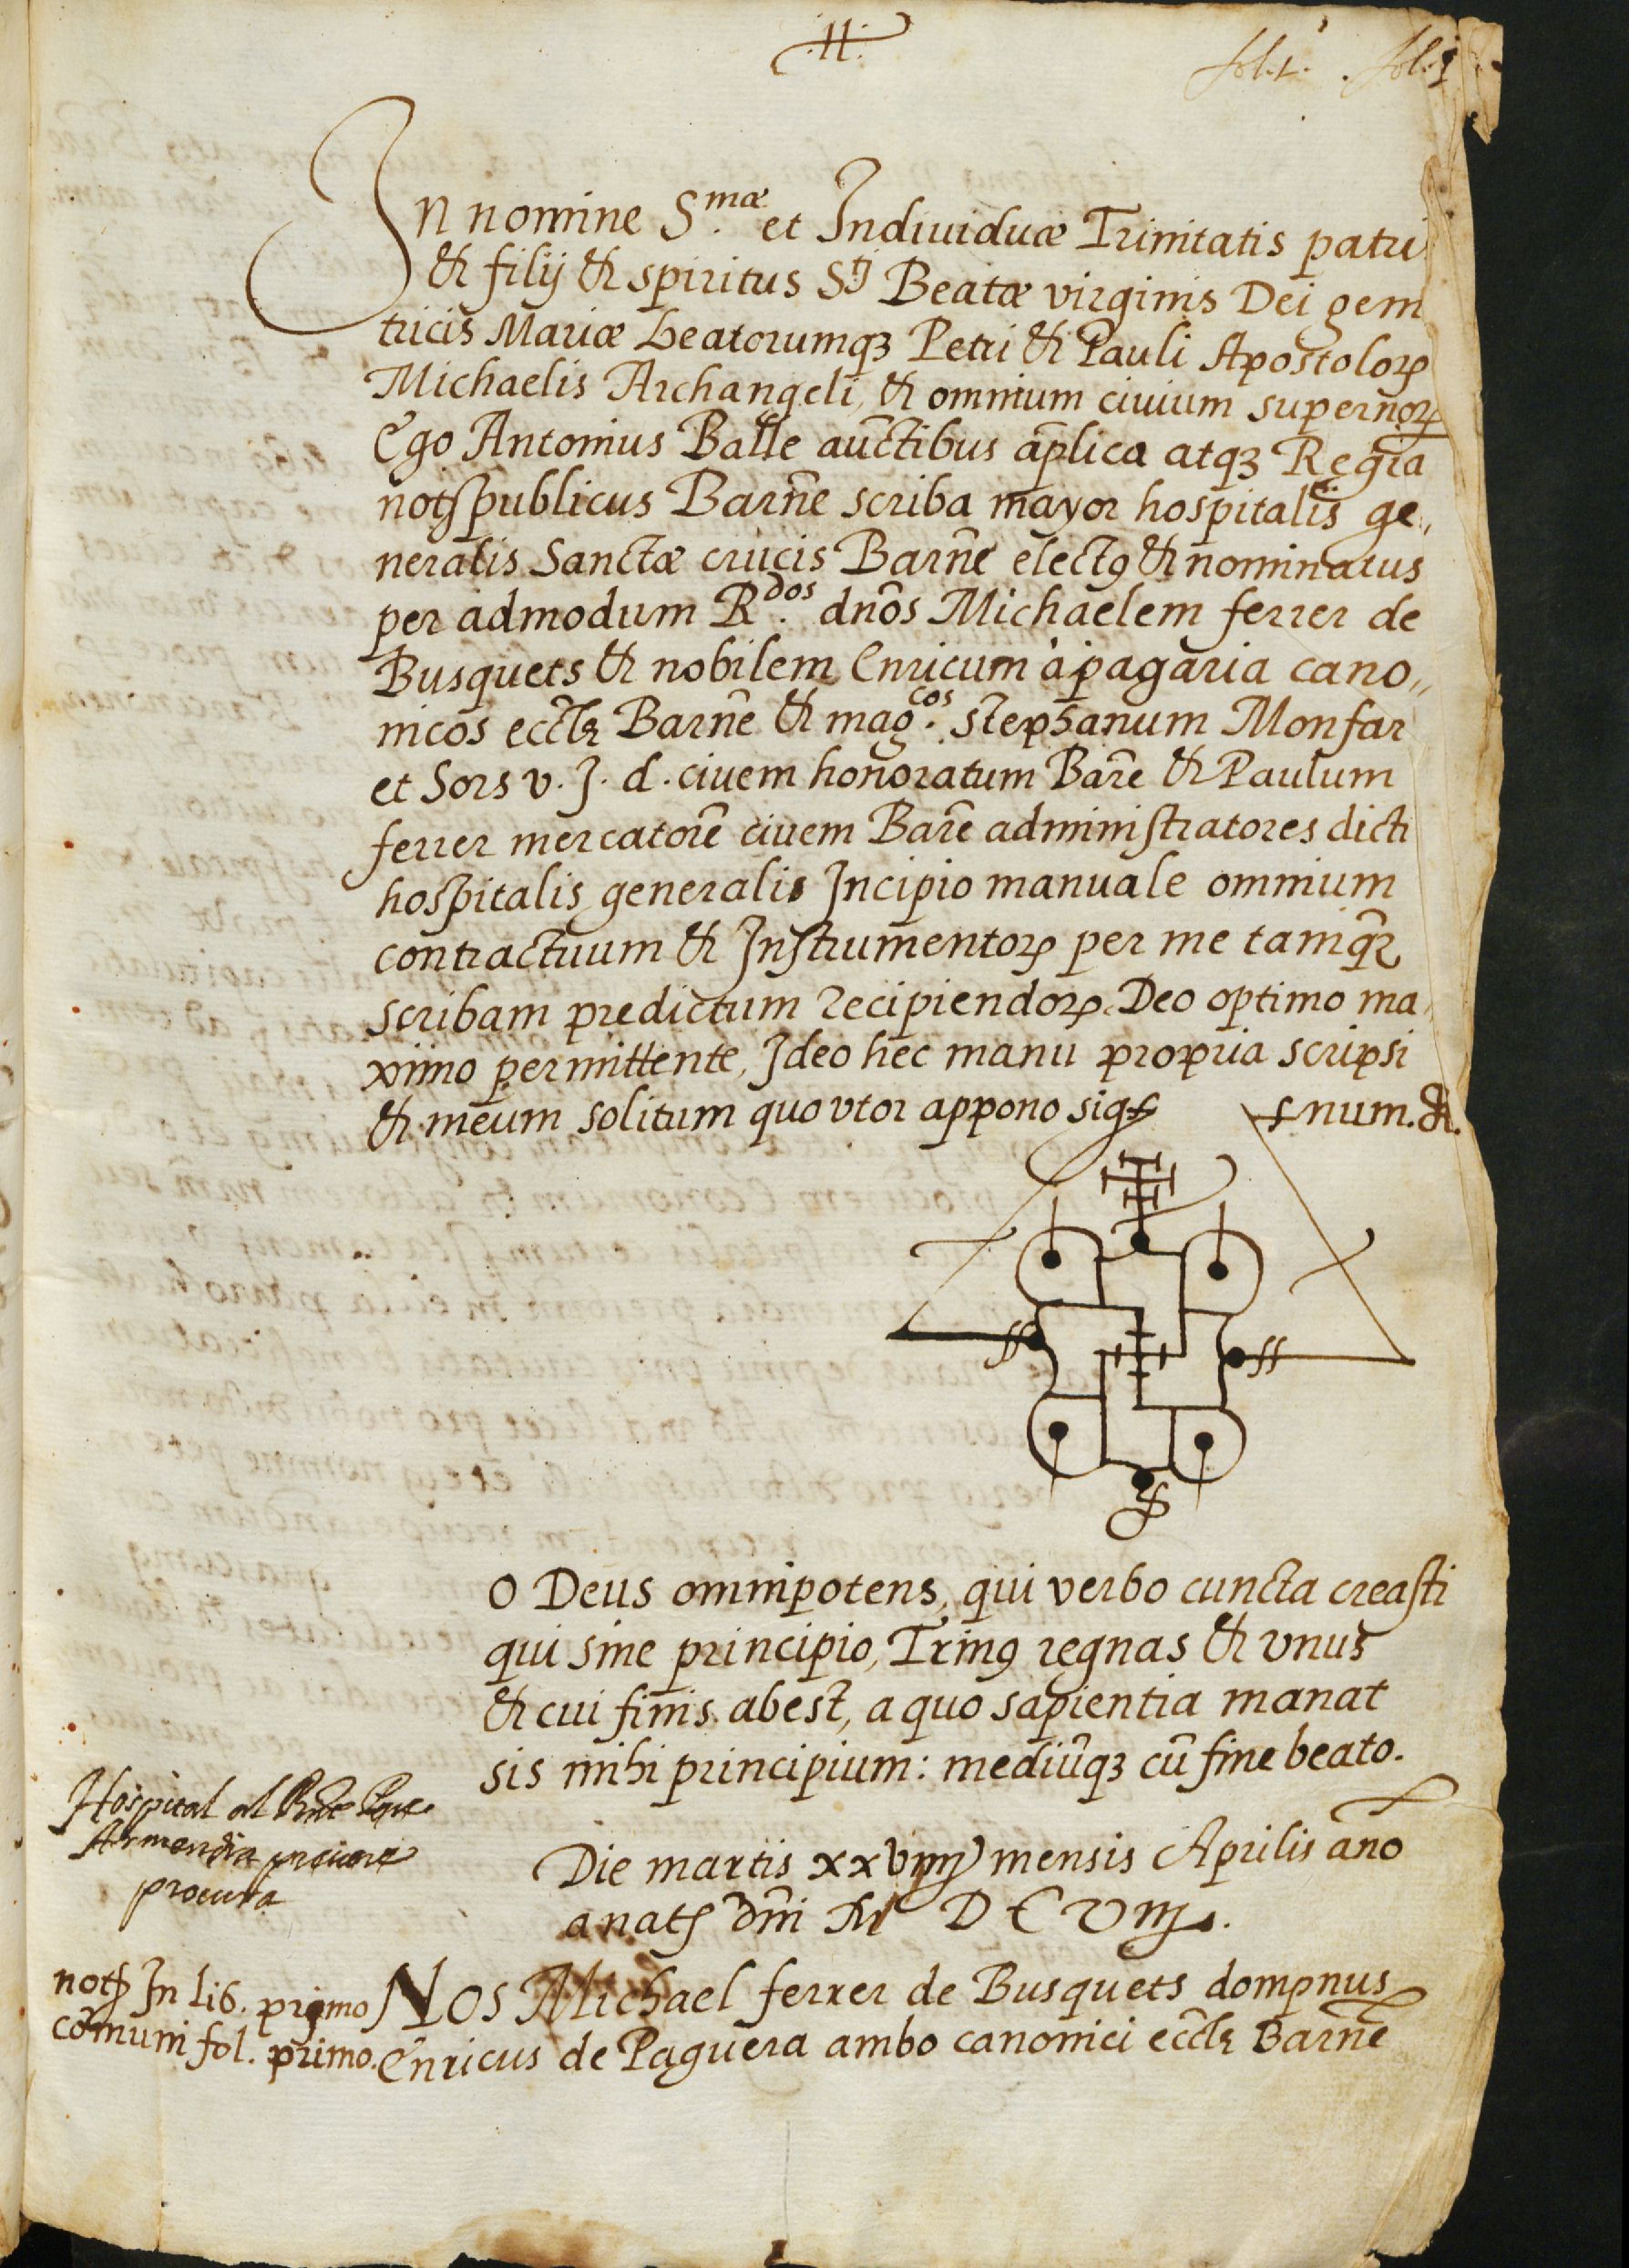 .II.
fol. 1. fol. 1
In nomine S.mæ et Indiuiduæ Trinitatis patri
& filij & spiritus Sti Beatæ virginis Dei geni
tricis Mariæ beatorumqꝫ Petri & Pauli Apostoloꝝ
Michaelis Archangeli, & omnium ciuium supernoꝝ
Ego Antonius Batlle auctibus aplica atqꝫ Regia
notus publicus Barne scriba mayor hospitalis ge,,
neralis Sanctæ crucis Barne electꝯ & nominatus
per admodum R.dos dnos Michaelem ferrer de
Busquets & nobilem Enricum a pagaria cano,,
nicos eccle Barne & mag.cos stephanum Monfar
et Sors v. J. d. ciuem honoratum Bare & Paulum
ferrer mercatore ciuem Bare administratores dicti
hospitalis generalis Incipio manuale omnium
contractuum & Instrumentoꝝ per me tamqꝫ
scribam predictum recipiendoꝝ. Deo optimo ma,
ximo permittente, Ideo hec manu propria scripsi
& meum solitum quo vtor appono sig num. &.
O Deus omnipotens, qui verbo cuncta creasti
qui sine principio, Trinꝯ regnas & vnus
& cui finis abest, a quo sapientia manat
sis mihi principium: mediūqꝫ cū fine beato.
Hospital al
Armendia
procura
Die martis xxviiij mensis Aprilis año
a nat dñi M D C Viij.
not In lib. primo
comuni fol. primo.
Nos Michael ferrer de Busquets dompnus
Enricus de Paguera ambo canonici eccle Barne